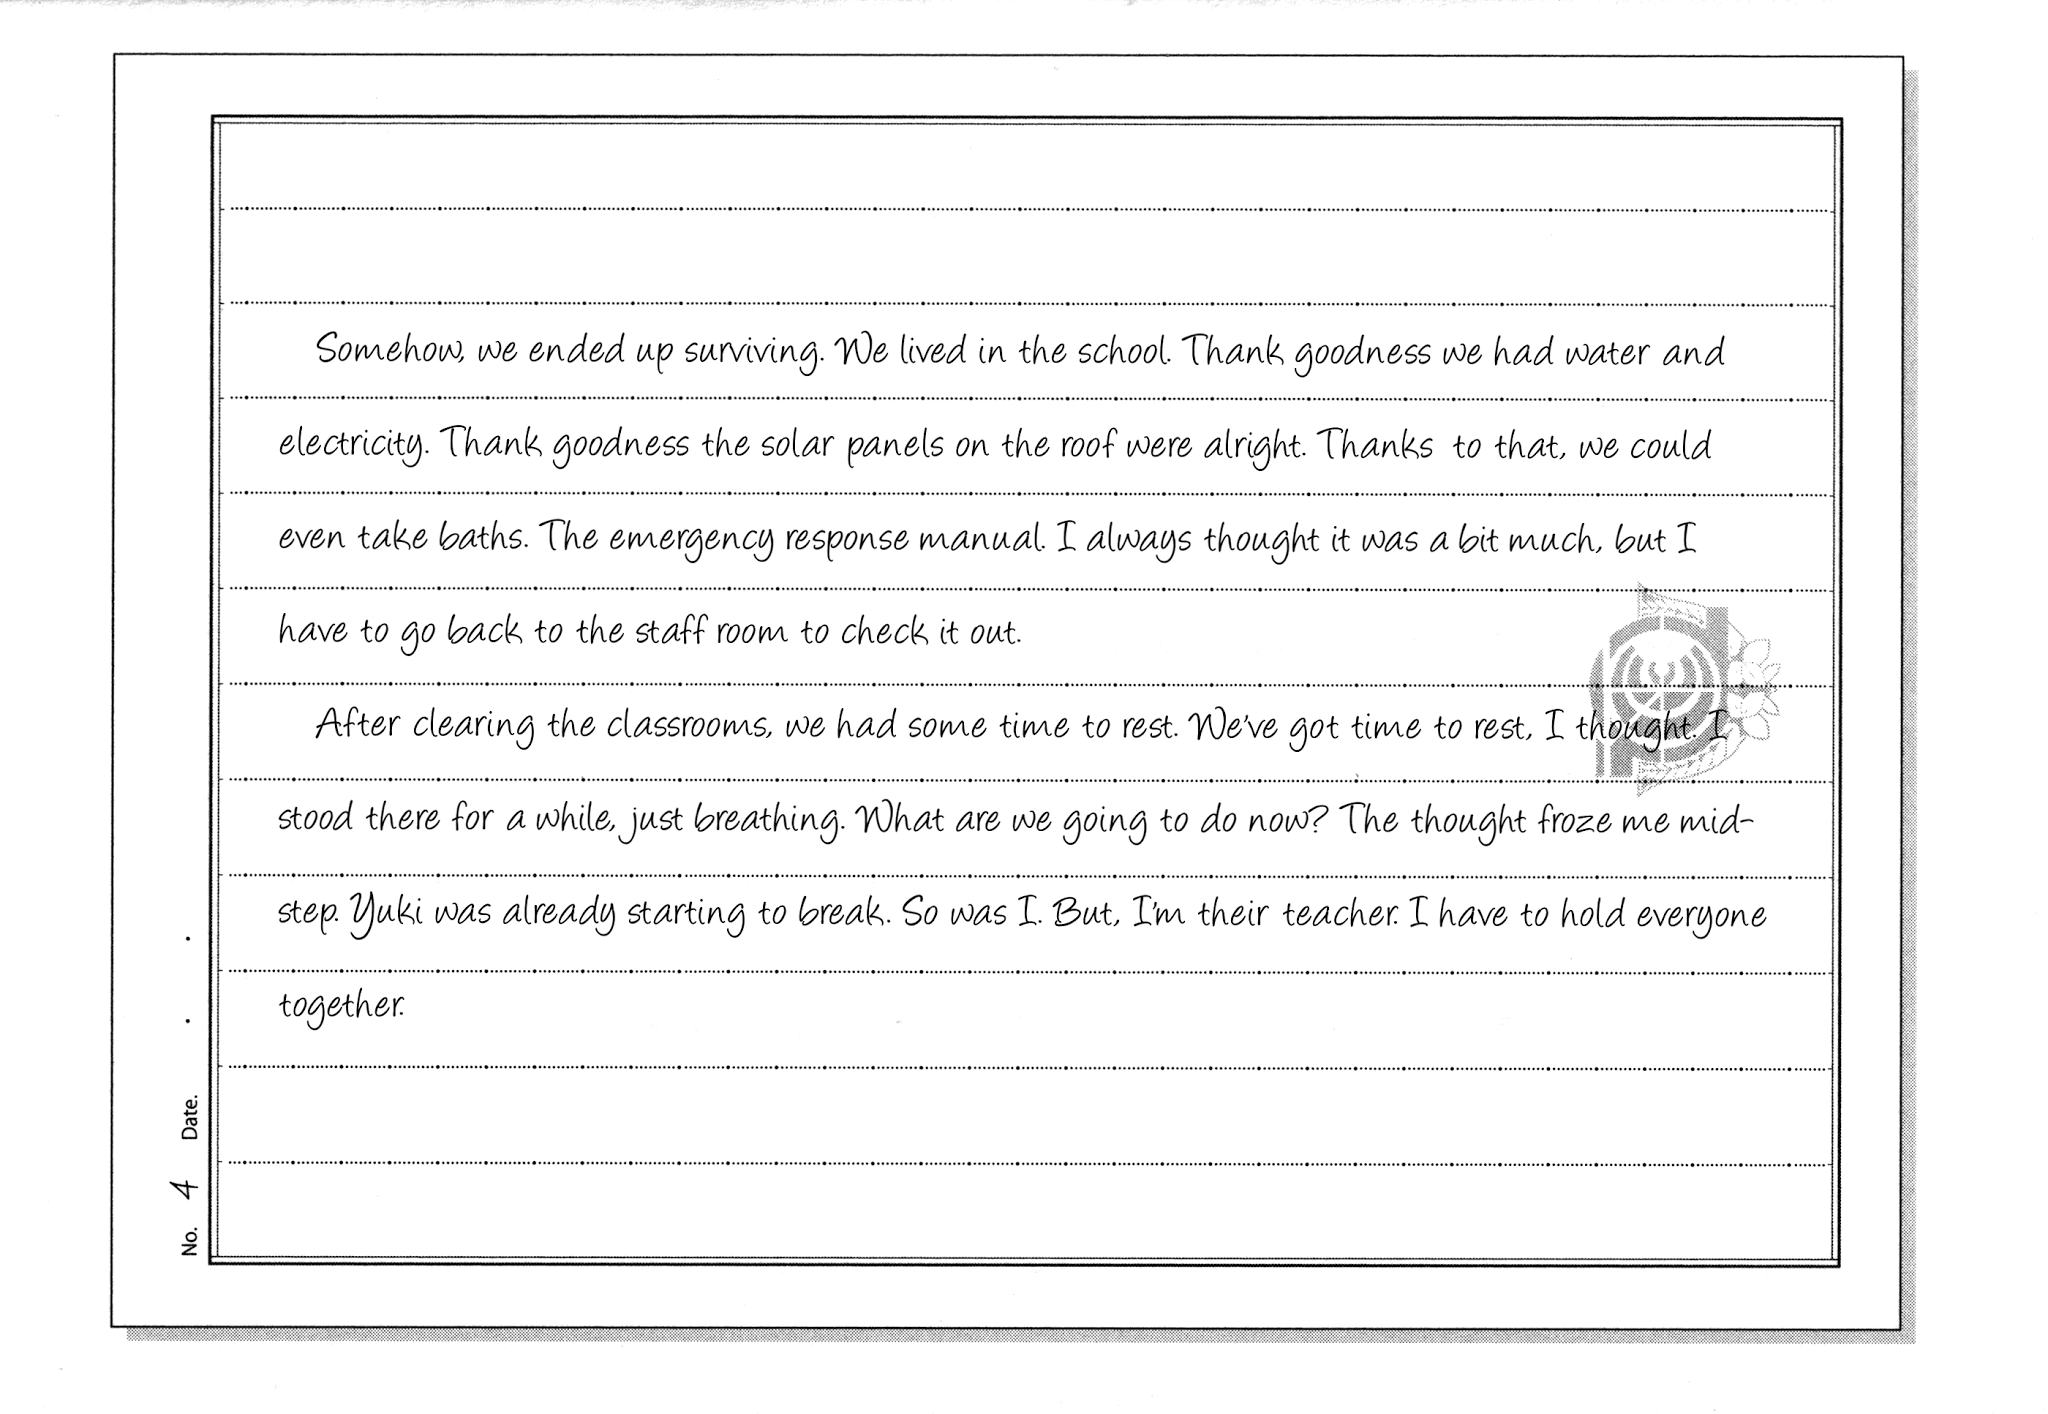 Somehow, we ended up surviving. We lived in the school. Thank goodness we had water and
electricity. Thank goodness the solar panels on the roof were alright. Thanks to that, we could
even take baths. The emergency response manual. I always thought it was a bit much, but I
have to go back to the staff room to check it out.
After clearing the classrooms, we had some time to rest. We've got time to rest, I thought. I
stood there for a while, just breathing. What are we going to do now? The thought froze me mid-
step. Yuki was already starting to break. So was I. But, I'm their teacher. I have to hold everyone
together.
No. 4 Date. . .